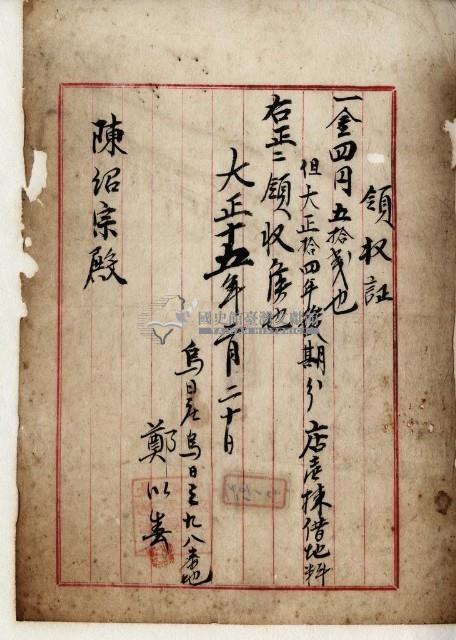 領収証
一金四円五拾戔也
但大正拾四年後八期分店壹棟借地料
右正ニ領收候也
大正十五年一月二十日
烏日庄烏日三九八番地
鄭以春
陳紹宗殿
國史館臺灣文獻館